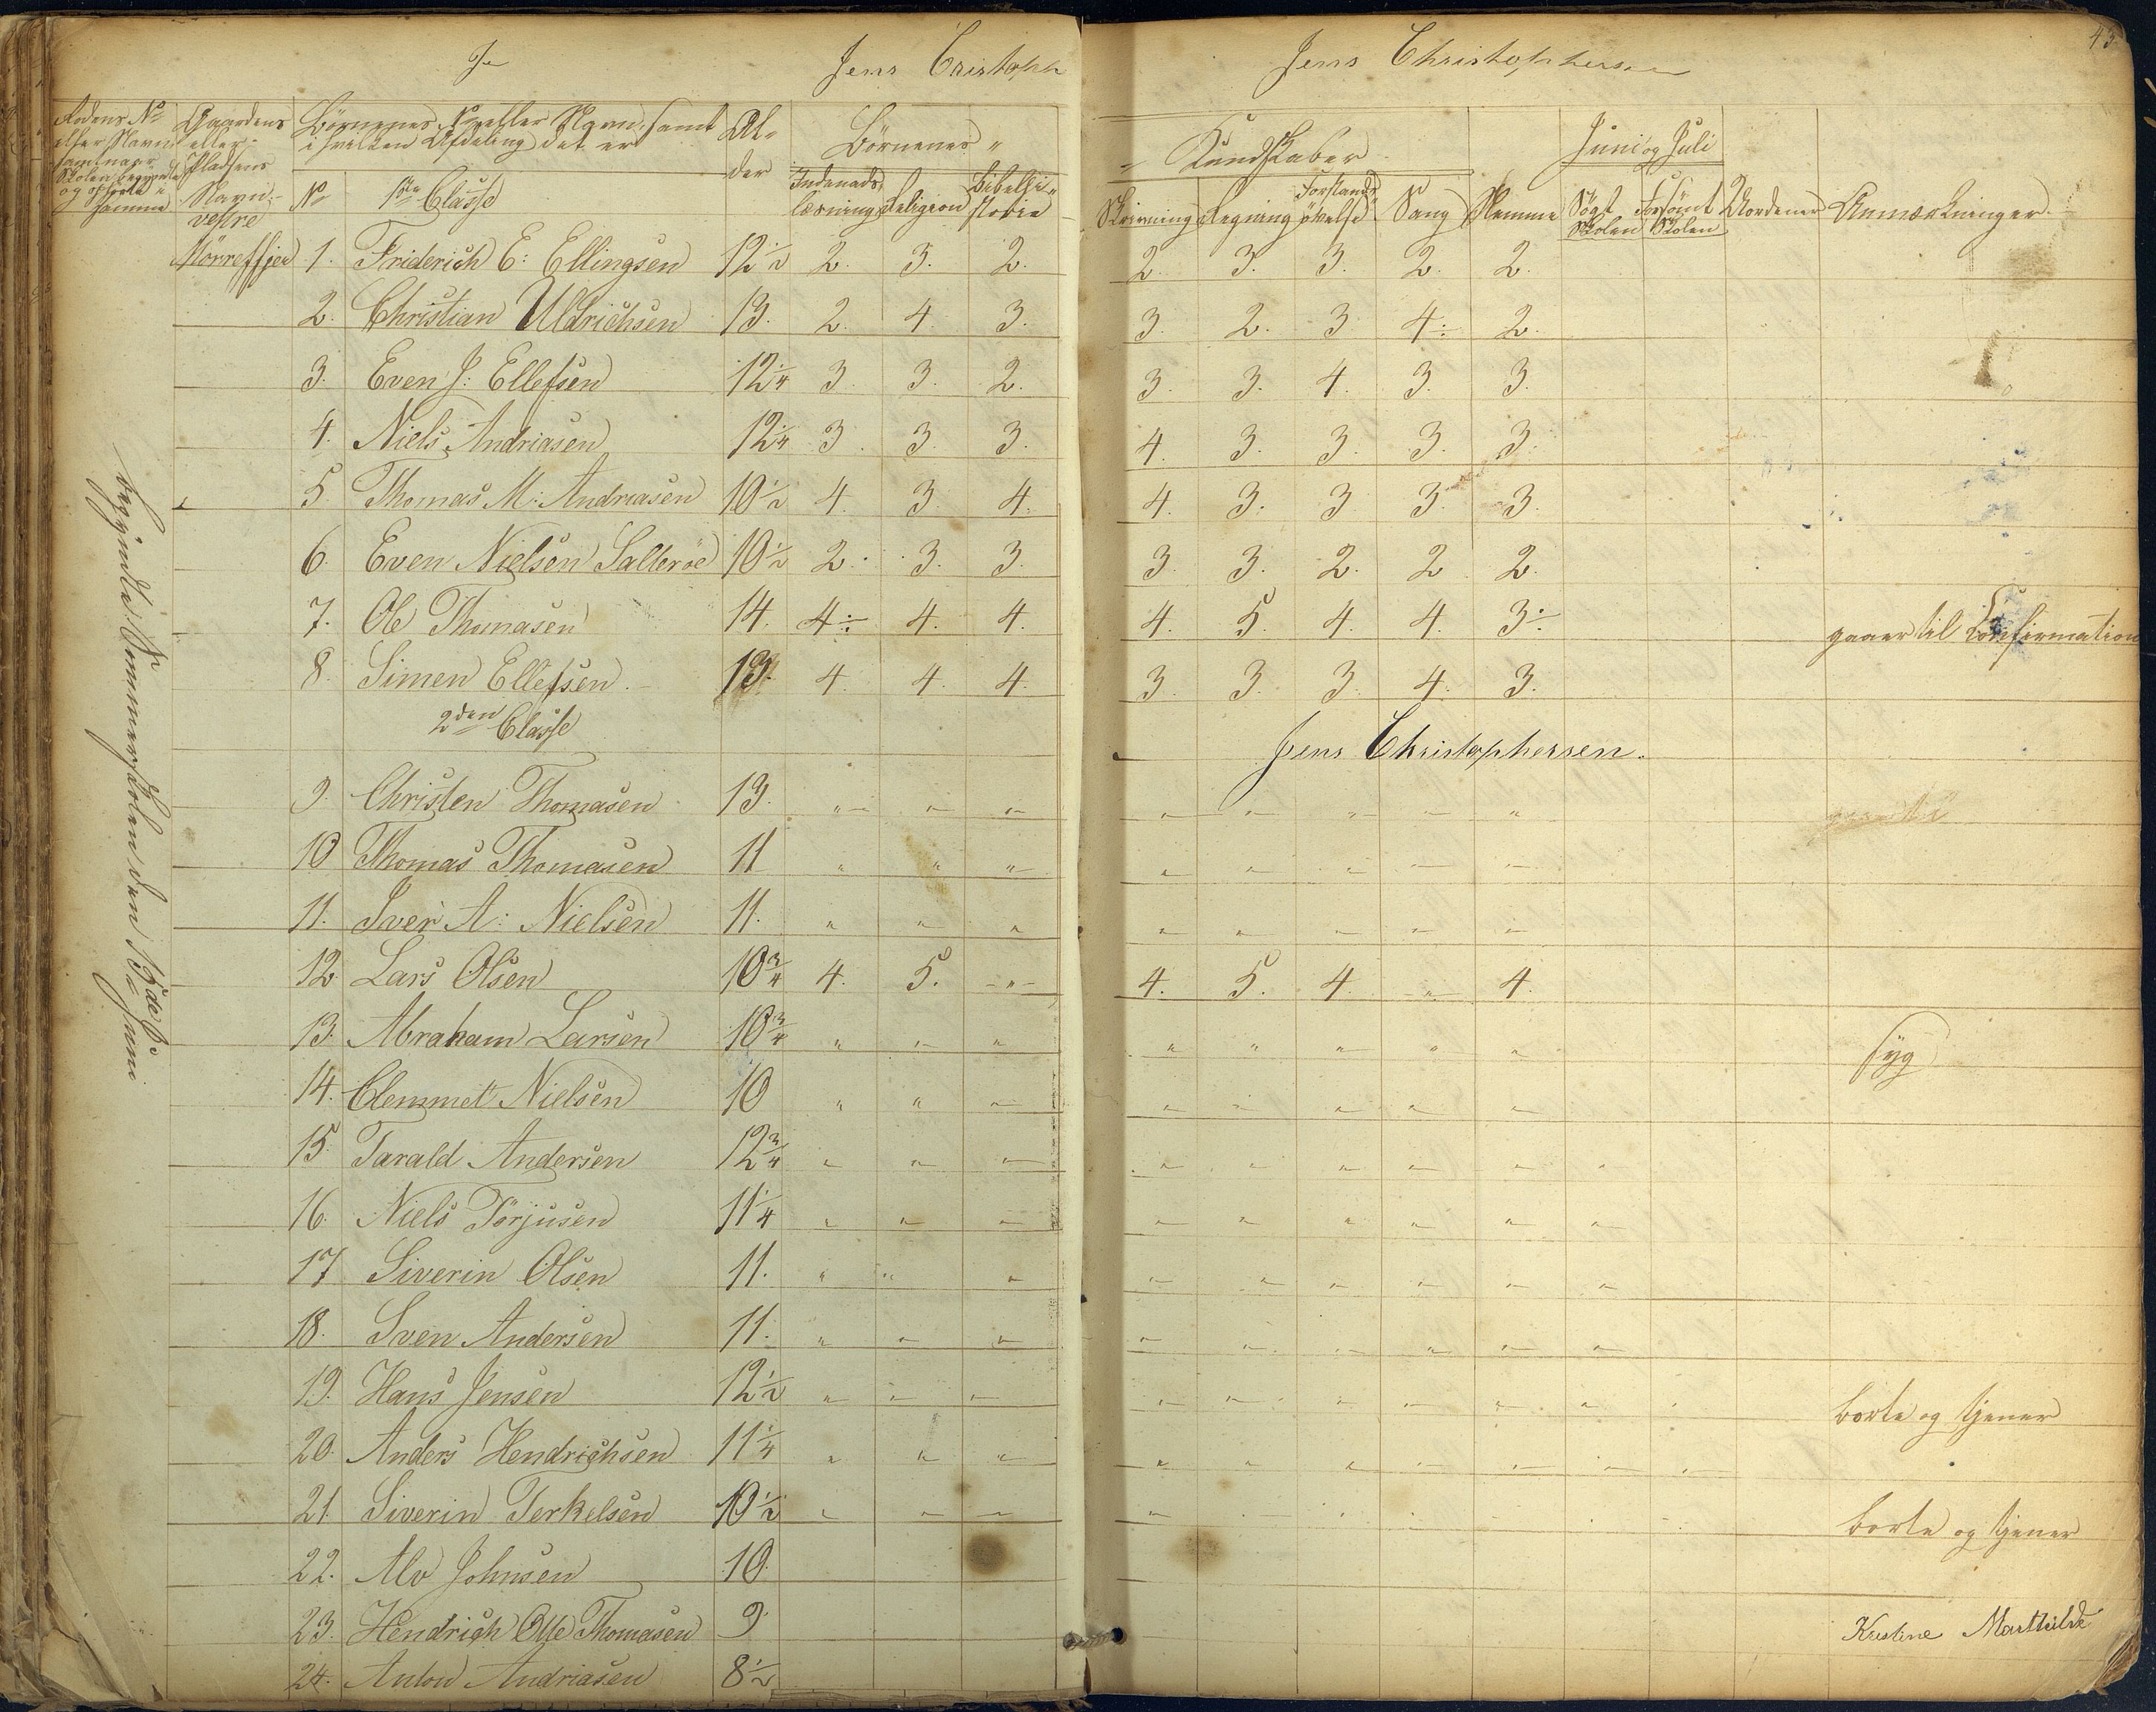 Je Jens Cristoph Jens Christophersen 43
Rodens No eller Navn samt naar Skolen begyndte og opholdt i samme
Gaardens eller Pladsens Navn.
Börnenes No eller Navn, samt i hvilken Afdeling det er
Alder
Börnenes " " Kundskaber
Juni og Juli
No 1ste Classe
Indenadslæsning Religion Bibelhistorie
Skrivning Regning Forstandsövelse Sang Stemme Sögt Skolen Forsömt Skolen Uordener Anmærkninger.
vestre Mörrefjer
1. Friderich E: Ellingsen 12 1/2 2. 3. 2. 2. 3. 3. 2. 2.
2. Christian Uldrichsen 13. 2. 4. 3. 3. 2. 3 4÷ 2.
3. Even J: Ellefsen 12 1/4 3 3. 2. 3. 3. 4. 3. 3.
4. Niels Andriasen 12 1/4 3. 3. 3. 4. 3. 3. 3. 3.
5. Thomas M: Andriasen 10 1/2 4. 3. 4. 4. 3. 3 3. 3.
6. Even Nielsen Salleröe 10 1/2 2. 3. 3. 3. 3. 2. 2 2.
7. Ole Thomasen 14. 4÷ 4. 4. 4. 5. 4. 4. 3÷ gaaer til Confirmation
8. Simen Ellefsen 13. 4. 4. 4. 3. 3. 3. 4. 3.
2den Classe
Jens Christophersen.
9. Christen Thomasen 13. " " " " " " " "
10 Thomas Thomasen 11 " " " " " " " "
11. Iver A: Nielsen 11. " " " " " " " "
12 Lars Olsen 10 3/4 4. 5. " 4. 5. 4. " 4.
13. Abraham Larsen 10 3/4 " " " " " " " " syg
14. Clemmet Nielsen 10 " " " " " " " "
15. Tarald Andersen 12 3/4 " " " " " " " " "
16. Niels Törjusen 11 1/4 " " " " " " " " "
17 Siverin Olsen 11. " " " " " " " " "
18. Sven Andersen 11. " " " " " " " " "
19. Hans Jensen 12 1/2 " " " " " " " " " " borte og tjener
20. Anders Hendrichsen 11 1/4 " " " " " " " " " "
21. Siverin Terkelsen 10 1/2 " " " " " " " " " " borte og tjener
22. Alv Johnsen 10.
23. Hendrich Olle Thomasen 9. Kristine Marthilde
24. Anton Andriasen 8 1/2
begyndte Sommerskolen den 15de Juni